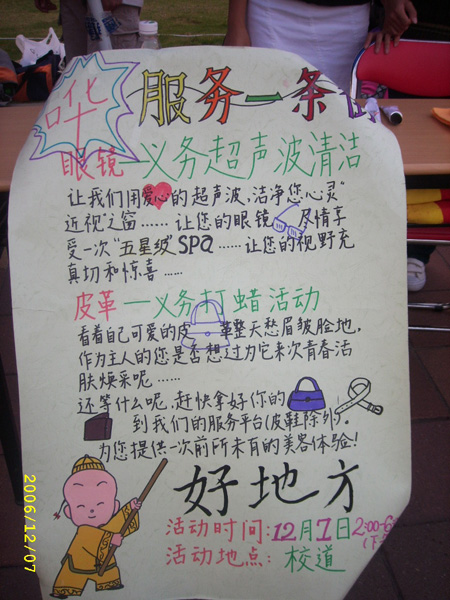 哗
服务一条
眼镜—义务超声波清洁
让我们用爱心的超声波,洁净您心灵”
近视”之窗……让您的眼镜 尽情享
受一次“五星级”SPA……让您的视野充
真切和惊喜……
皮革—义务打蜡活动
看着自己可爱的皮革整天愁眉皱脸地,
作为主人的您是否想过为它来次青春活
肤焕采呢……
还等什么呢,赶快拿好你的
到我们的服务平台(皮鞋除外)。
为您提供一次前所未有的美容体验!
好地方
活动时间:12月7日2:00-6
(下
活动地点:校道
2006/12/07